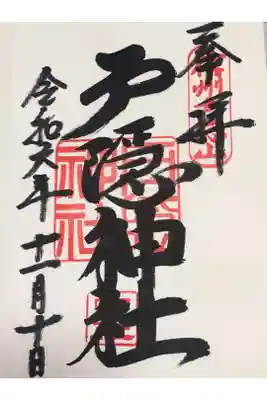 奉拝
戸隠神社
令和六年十一月十日